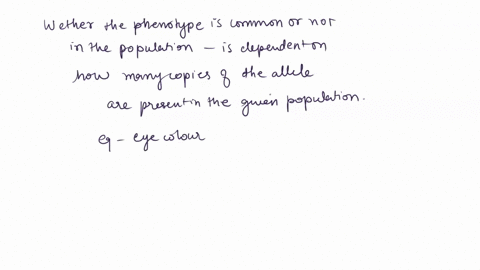 Wether the phenotype is common or not
in the population - is dependent on
how many copies of the allele
are present in the given population.
eg - eye colour